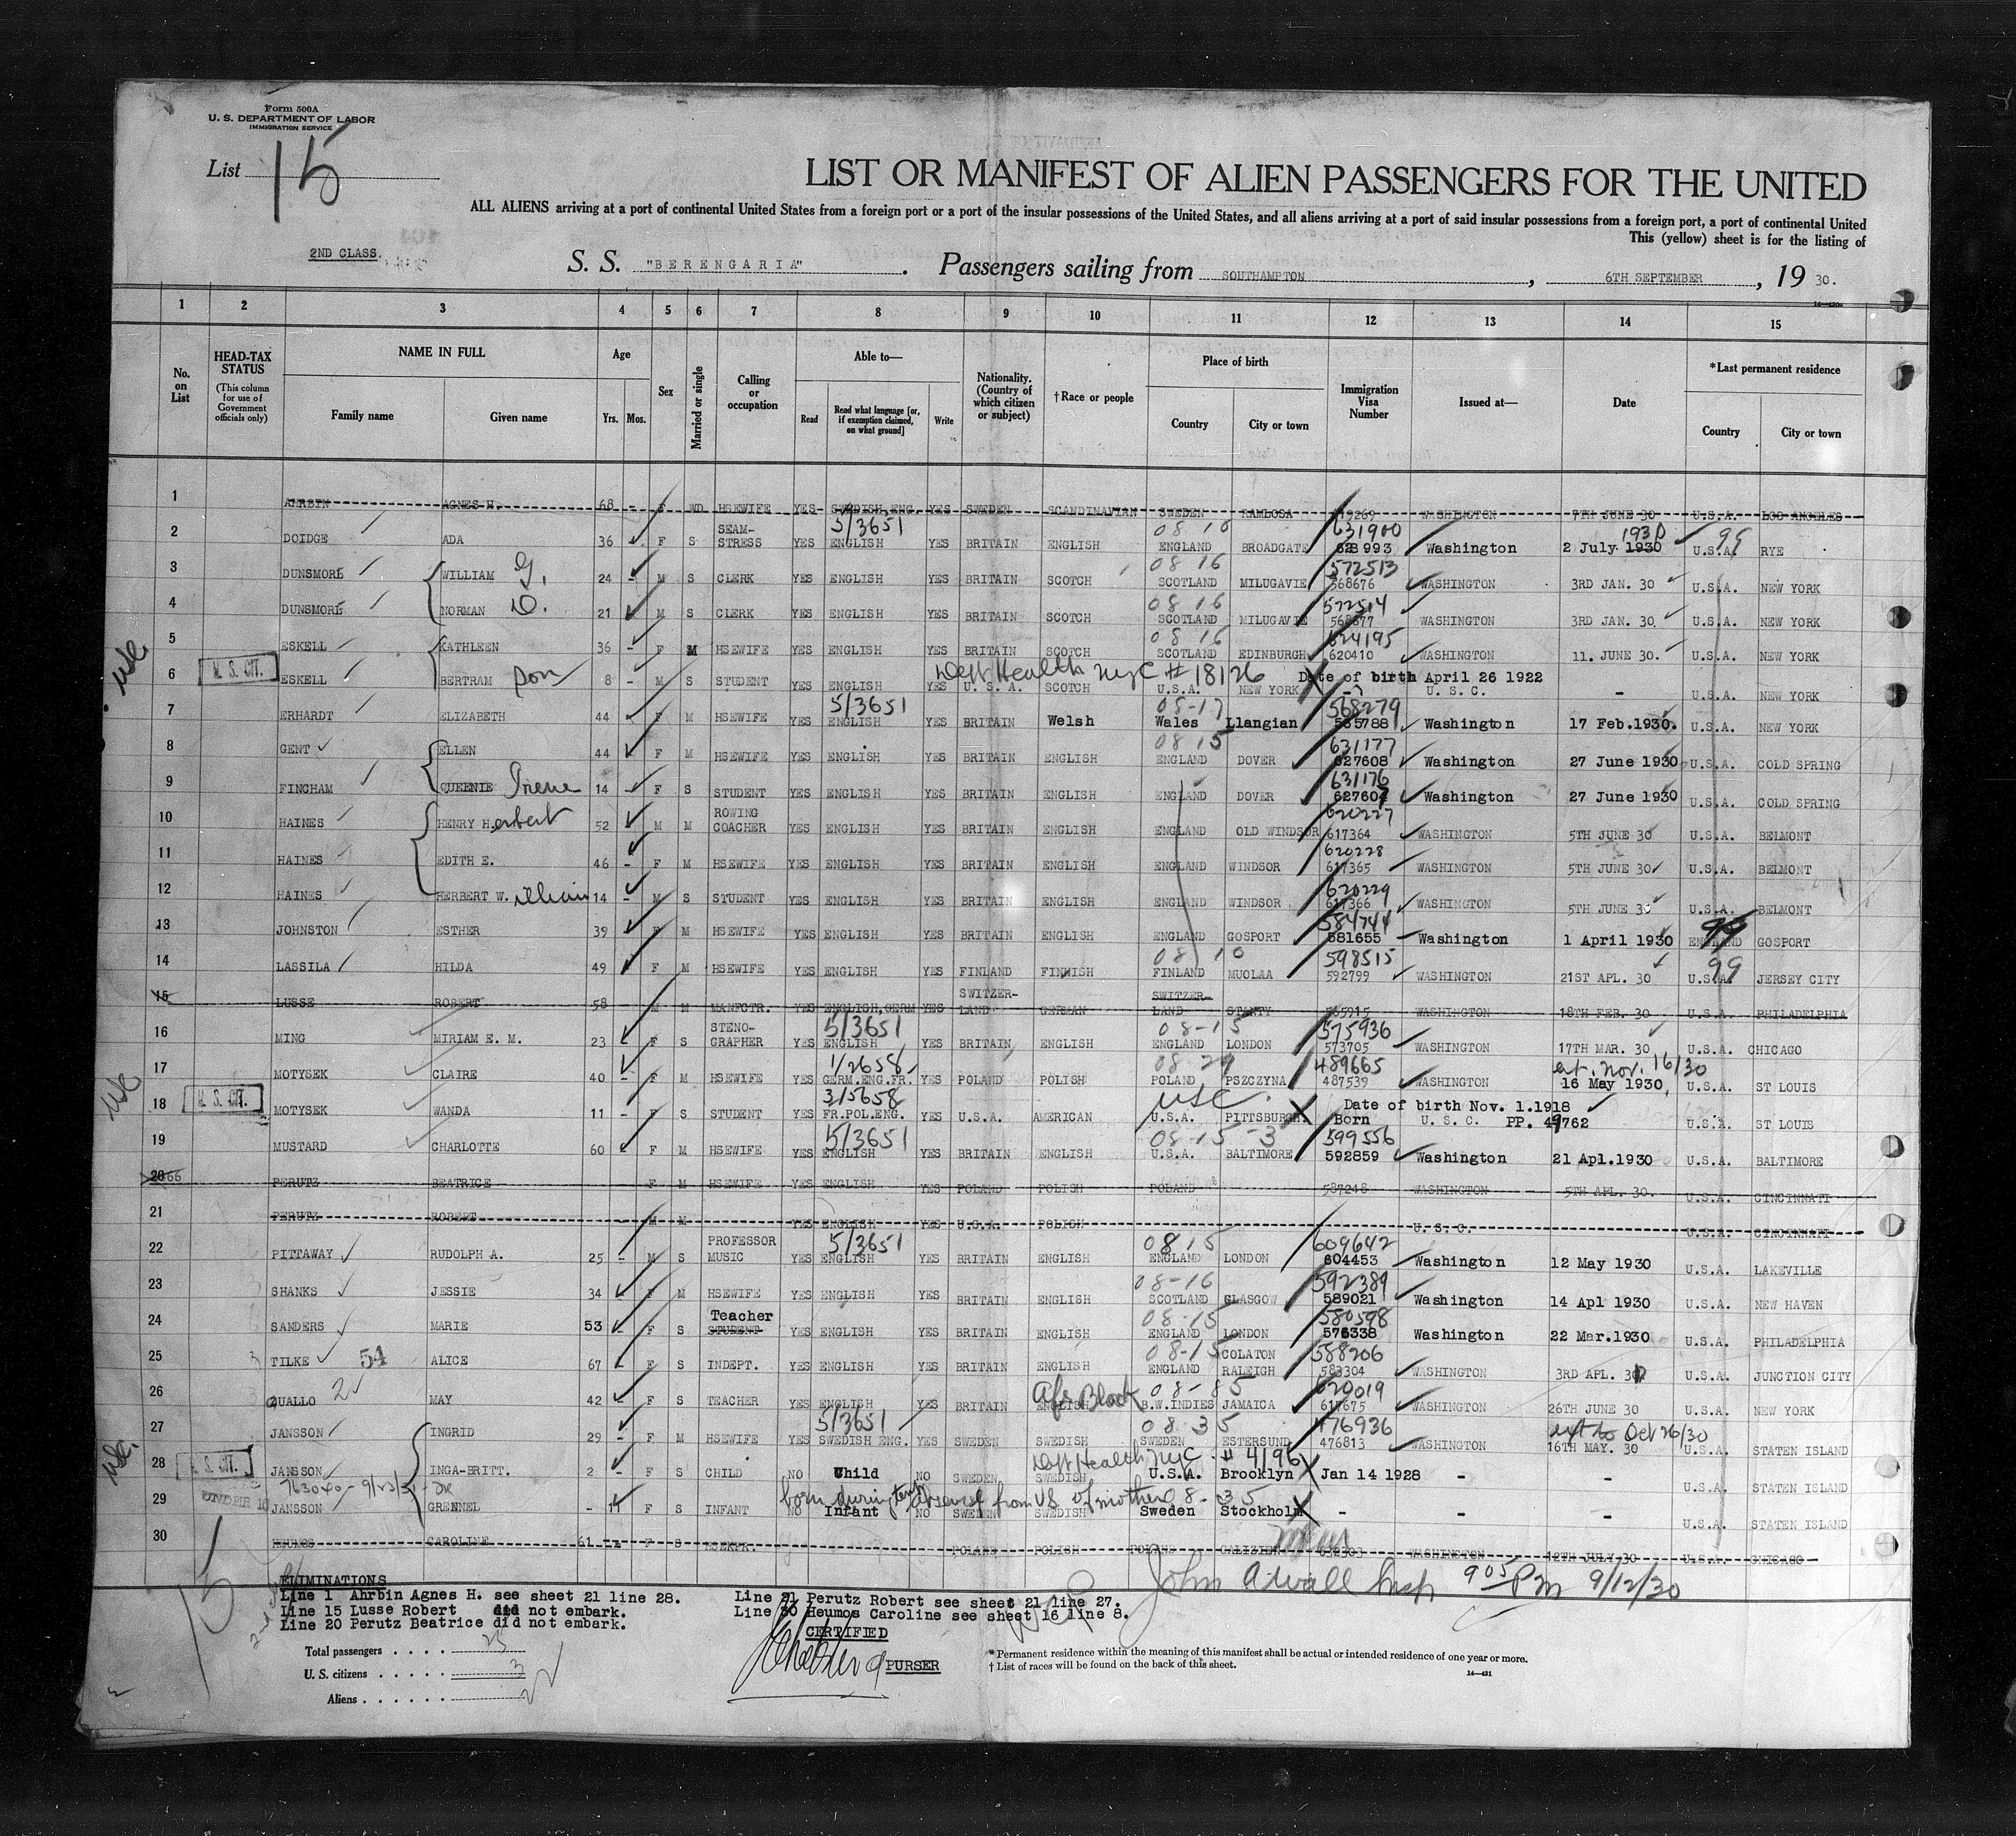 Form 500A
U. S. DEPARTMENT OF LABOR
IMMIGRATION SERVICE
List 15
LIST OR MANIFEST OF ALIEN PASSENGERS FOR THE UNITED
ALL ALIENS arriving at a port of continental United States from a foreign port or a port of the insular possessions of the United States, and all aliens arriving at a port of said insular possessions from a foreign port, a port of continental United
This (yellow) sheet is for the listing of
2ND CLASS. S. S. "BERENGARIA". Passengers sailing from SOUTHAMPTON, 6TH SEPTEMBER, 19 30.
1 2 3 4 5 6 7 8 9 10 11 12 13 14 15
No. on List
HEAD-TAX STATUS (This column for use of Government officials only)
NAME IN FULL Family name Given name
Age Yrs. Mos.
Sex
Married or single
Calling or occupation
Able to— Read Read what language [or, if exemption claimed, on what ground] Write
Nationality. (Country of which citizen or subject)
†Race or people
Place of birth Country City or town
Immigration Visa Number
Issued at—
Date
*Last permanent residence Country City or town
1 AHRBIN AGNES H. 68 - F WD HSEWIFE YES SWEDISH,ENG. YES SWEDEN SCANDINAVIAN SWEDEN RAMLOSA WASHINGTON 7TH JUNE 30 U.S.A. LOS ANGELES
2 DOIDGE ADA 36 F S SEAM-STRESS YES 5/3651 ENGLISH YES BRITAIN ENGLISH 08 16 ENGLAND BROADGATE 631900 628993 Washington 2 July 1930 1930 U.S.A. 99 RYE
3 DUNSMORE WILLIAM G. 24 - M S CLERK YES ENGLISH YES BRITAIN SCOTCH 08 16 SCOTLAND MILUGAVIE 572513 568676 WASHINGTON 3RD JAN. 30 U.S.A. NEW YORK
4 DUNSMORE NORMAN D. 21 M S CLERK YES ENGLISH YES BRITAIN SCOTCH 08 16 SCOTLAND MILUGAVIE 572514 568677 WASHINGTON 3RD JAN. 30 U.S.A. NEW YORK
5 ESKELL KATHLEEN 36 - F M HSEWIFE YES ENGLISH YES BRITAIN SCOTCH 08 16 SCOTLAND EDINBURGH 624195 620410 WASHINGTON 11. JUNE 30. U.S.A. NEW YORK
usc U. S. CIT. 6 ESKELL BERTRAM son 8 - M S STUDENT YES ENGLISH YES U.S.A. SCOTCH Dept Health NYC # 18126 U.S.A. NEW YORK Date of birth April 26 1922 U. S. C. - U.S.A. NEW YORK
7 ERHARDT ELIZABETH 44 - F M HSEWIFE YES 5/3651 ENGLISH YES BRITAIN Welsh 08-17 Wales Llangian 568279 565788 Washington 17 Feb.1930. U.S.A. NEW YORK
8 GENT ELLEN 44 F M HSEWIFE YES ENGLISH YES BRITAIN ENGLISH 08 15 ENGLAND DOVER 631177 627608 Washington 27 June 1930 U.S.A. COLD SPRING
9 FINCHAM QUEENIE Irene 14 - F S STUDENT YES ENGLISH YES BRITAIN ENGLISH ENGLAND DOVER 631176 627607 Washington 27 June 1930 U.S.A. COLD SPRING
10 HAINES HENRY Herbert 52 M M ROWING COACHER YES ENGLISH YES BRITAIN ENGLISH ENGLAND OLD WINDSOR 620227 617364 WASHINGTON 5TH JUNE 30 U.S.A. BELMONT
11 HAINES EDITH E. 46 - F M HSEWIFE YES ENGLISH YES BRITAIN ENGLISH ENGLAND WINDSOR 620228 617365 WASHINGTON 5TH JUNE 30 U.S.A. BELMONT
12 HAINES HERBERT W. illiam 14 - M S STUDENT YES ENGLISH YES BRITAIN ENGLISH ENGLAND WINDSOR 620229 617366 WASHINGTON 5TH JUNE 30 U.S.A. BELMONT
13 JOHNSTON ESTHER 39 F M HSEWIFE YES ENGLISH YES BRITAIN ENGLISH ENGLAND GOSPORT 584744 581655 Washington 1 April 1930 ENGLAND 99 GOSPORT
14 LASSILA HILDA 49 F M HSEWIFE YES ENGLISH YES FINLAND FINNISH 08 10 FINLAND MUOLAA 598515 592799 WASHINGTON 21ST APL. 30 U.S.A. 99 JERSEY CITY
15 LUSSE ROBERT 58 M M MANFCTR. YES ENGLISH,GERM YES SWITZER-LAND GERMAN SWITZER-LAND WASHINGTON 18TH FEB. 30 U.S.A. PHILADELPHIA
16 MING MIRIAM E. M. 23 F S STENO-GRAPHER YES 5/3651 ENGLISH YES BRITAIN ENGLISH 08-15 ENGLAND LONDON 575936 573705 WASHINGTON 17TH MAR. 30 U.S.A. CHICAGO
17 MOTYSEK CLAIRE 40 - F M HSEWIFE YES 1/2658 GERM.ENG.FR. YES POLAND POLISH 08 29 POLAND PSZCZYNA 489665 487539 WASHINGTON ext. Nov. 16/30 16 May 1930 U.S.A. ST LOUIS
usc U. S. CIT. 18 MOTYSEK WANDA 11 - F S STUDENT YES 3/5658 FR.POL.ENG. YES U.S.A. AMERICAN USC. U.S.A. PITTSBURGH. Date of birth Nov. 1.1918 Born U. S. C. PP. 49762 U.S.A. ST LOUIS
19 MUSTARD CHARLOTTE 60 F M HSEWIFE YES 5/3651 ENGLISH YES BRITAIN ENGLISH 08-15-3 U.S.A. BALTIMORE 599556 592859 Washington 21 Apl.1930 U.S.A. BALTIMORE
20 66 PERUTZ BEATRICE F M HSEWIFE YES ENGLISH YES POLAND POLISH POLAND 587248 WASHINGTON 5TH APL. 30. U.S.A. CINCINNATI
21 PERUTZ ROBERT M M YES ENGLISH YES U.S.A. POLISH U.S.C. U.S.A. CINCINNATI
22 PITTAWAY RUDOLPH A. 25 - M S PROFESSOR MUSIC YES 5/3651 ENGLISH YES BRITAIN ENGLISH 08 15 ENGLAND LONDON 609642 604453 Washington 12 May 1930 U.S.A. LAKEVILLE
23 SHANKS JESSIE 34 F M HSEWIFE YES ENGLISH YES BRITAIN ENGLISH 08-16 SCOTLAND GLASGOW 592389 589021 Washington 14 Apl 1930 U.S.A. NEW HAVEN
24 SANDERS MARIE 53 - F S Teacher STUDENT YES ENGLISH YES BRITAIN ENGLISH 08-15 ENGLAND LONDON 580598 576338 Washington 22 Mar.1930 U.S.A. PHILADELPHIA
25 TILKE 54 ALICE 67 - F S INDEPT. YES ENGLISH YES BRITAIN ENGLISH 08-15 ENGLAND COLATON RALEIGH 588206 583304 WASHINGTON 3RD APL. 30 U.S.A. JUNCTION CITY
26 QUALLO 2 MAY 42 - F S TEACHER YES ENGLISH YES BRITAIN ENGLISH Afr Black 08-85 B.W.INDIES JAMAICA 620019 617675 WASHINGTON 26TH JUNE 30 U.S.A. NEW YORK
27 JANSSON INGRID 29 - F M HSEWIFE YES 5/3651 SWEDISH ENG. YES SWEDEN SWEDISH 08 35 SWEDEN ESTERSUND 476936 476813 WASHINGTON ext to Oct 26/30 16TH MAY. 30 U.S.A. STATEN ISLAND
usc. U. S. CIT. 28 JANSSON INGA-BRITT. 2 - F S CHILD NO Child NO SWEDEN SWEDISH Dept Health NYC # 4196 U.S.A. Brooklyn Jan 14 1928 - - U.S.A. STATEN ISLAND
UNDER 16 29 JANSSON GRENNEL - 11 F S INFANT NO Infant NO SWEDEN SWEDISH born during temp absence from US of mother 08-35 Sweden Stockholm - - U.S.A. STATEN ISLAND
30 HEUMOS CAROLINE 61 F S HSEKPR. POLAND POLISH POLAND WASHINGTON 12TH JULY 30 U.S.A. CHICAGO
John A Wall Insp 9 05 PM 9/12/30
ELIMINATIONS
Line 1 Ahrbin Agnes H. see sheet 21 line 28.
Line 15 Lusse Robert did not embark.
Line 20 Perutz Beatrice did not embark.
Line 21 Perutz Robert see sheet 21 line 27.
Line 30 Heumos Caroline see sheet 16 line 8.
CERTIFIED
PURSER
Total passengers . . . . 25
U. S. citizens . . . . 3
Aliens . . . . . . 22
*Permanent residence within the meaning of this manifest shall be actual or intended residence of one year or more.
†List of races will be found on the back of this sheet.
14—431